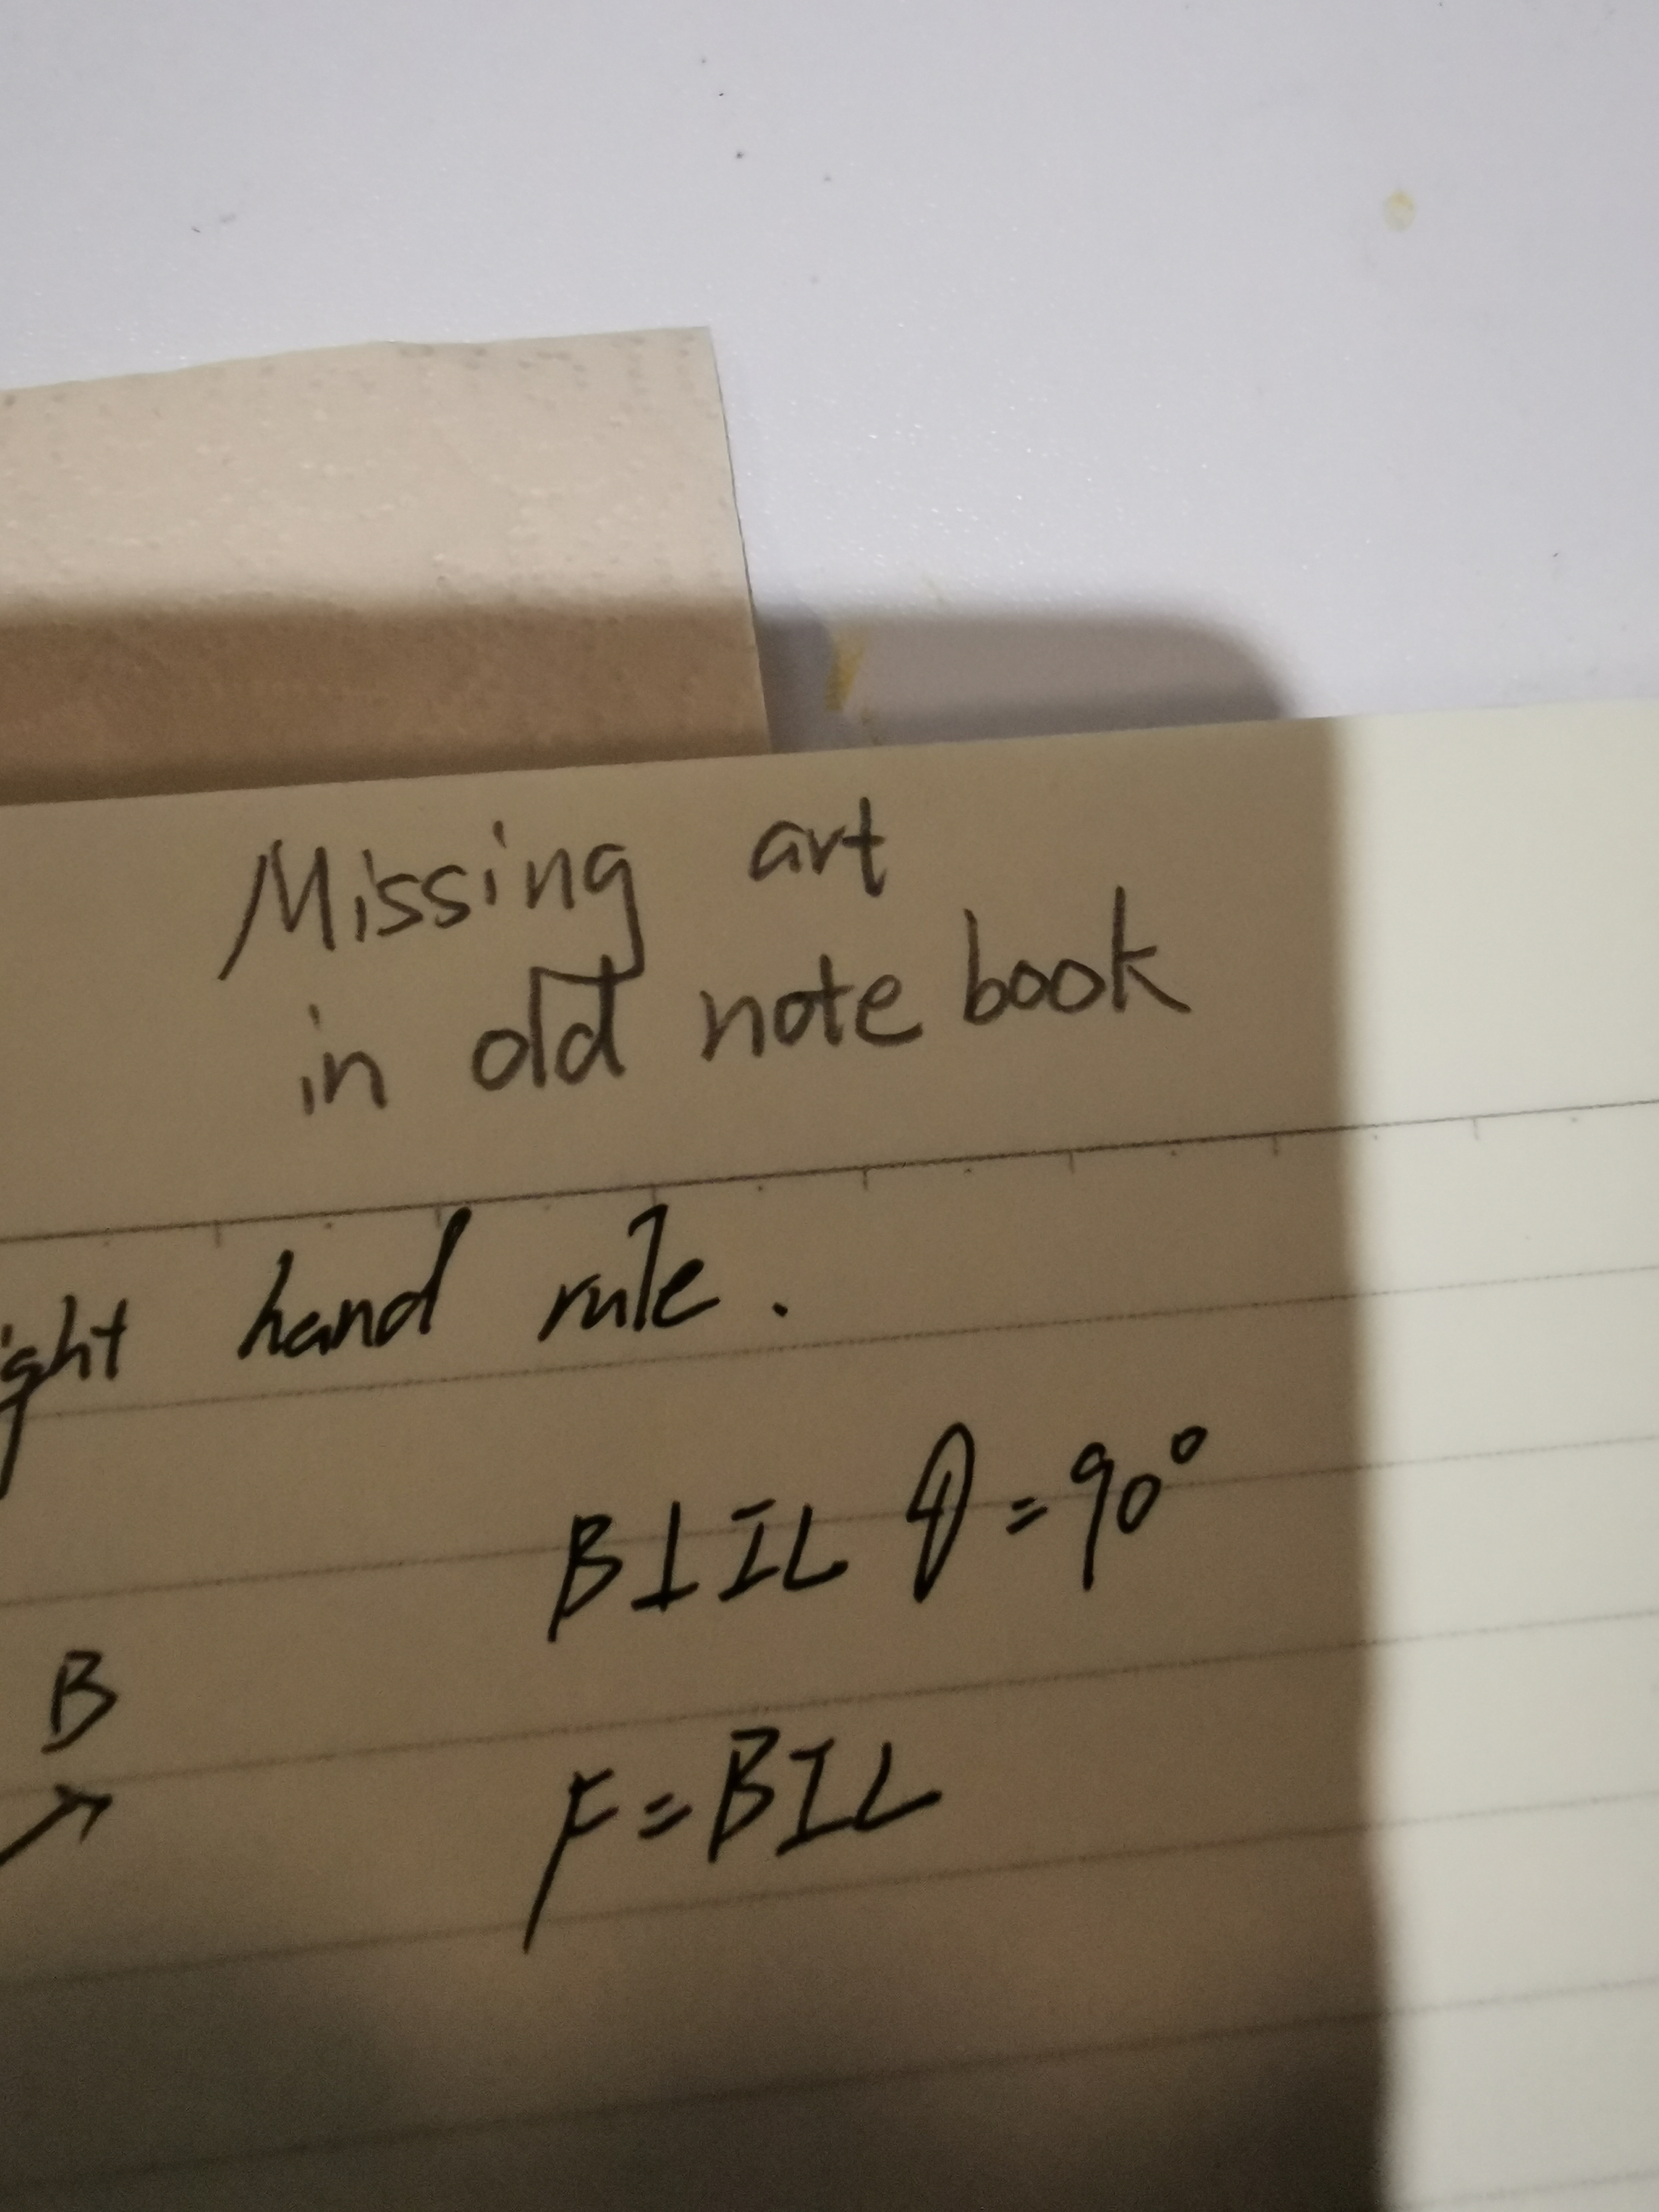 Missing art
in old note book
ight hand rule.
B⊥IL θ=90°
B
F=BIL